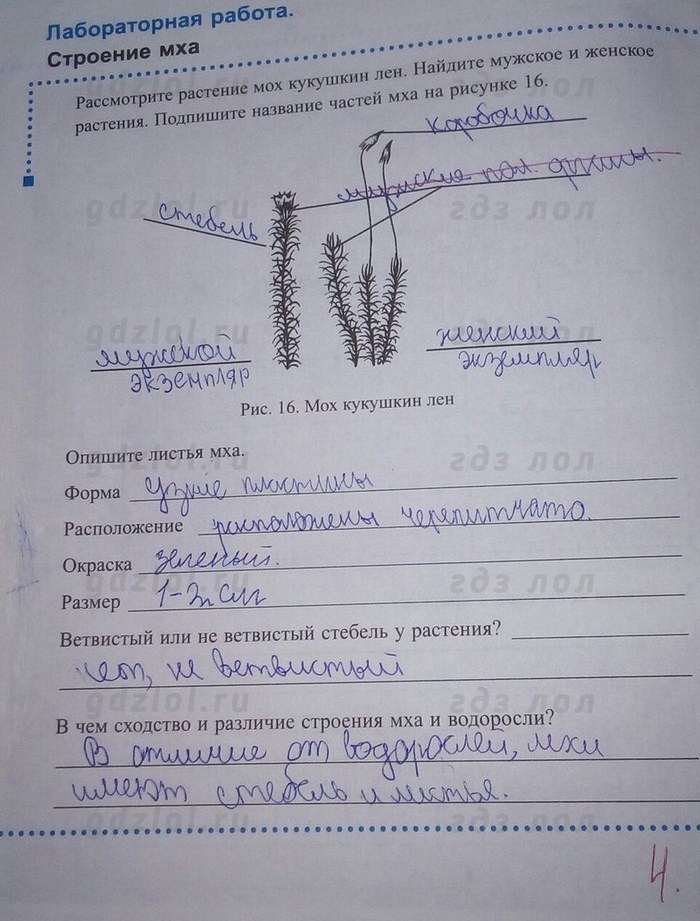 Лабораторная работа.
Строение мха
Рассмотрите растение мох кукушкин лен. Найдите мужское и женское
растения. Подпишите название частей мха на рисунке 16.
коробочка
мужские пол. органы.
gdzlol.ru
гдз лол
стебель
gdzlol.ru
гдз лол
мужской
экземпляр
женский
экземпляр
Рис. 16. Мох кукушкин лен
Опишите листья мха.
gdzlol.ru
гдз лол
Форма узкие пластины
Расположение расположены черепитчато.
Окраска зеленый.
gdzlol.ru
гдз лол
Размер 1-2 см
Ветвистый или не ветвистый стебель у растения?
нет, не ветвистый
gdzlol.ru
гдз лол
В чем сходство и различие строения мха и водоросли?
В отличие от водорослей, мхи
имеют стебель и листья.
gdzlol.ru
гдз лол
4.